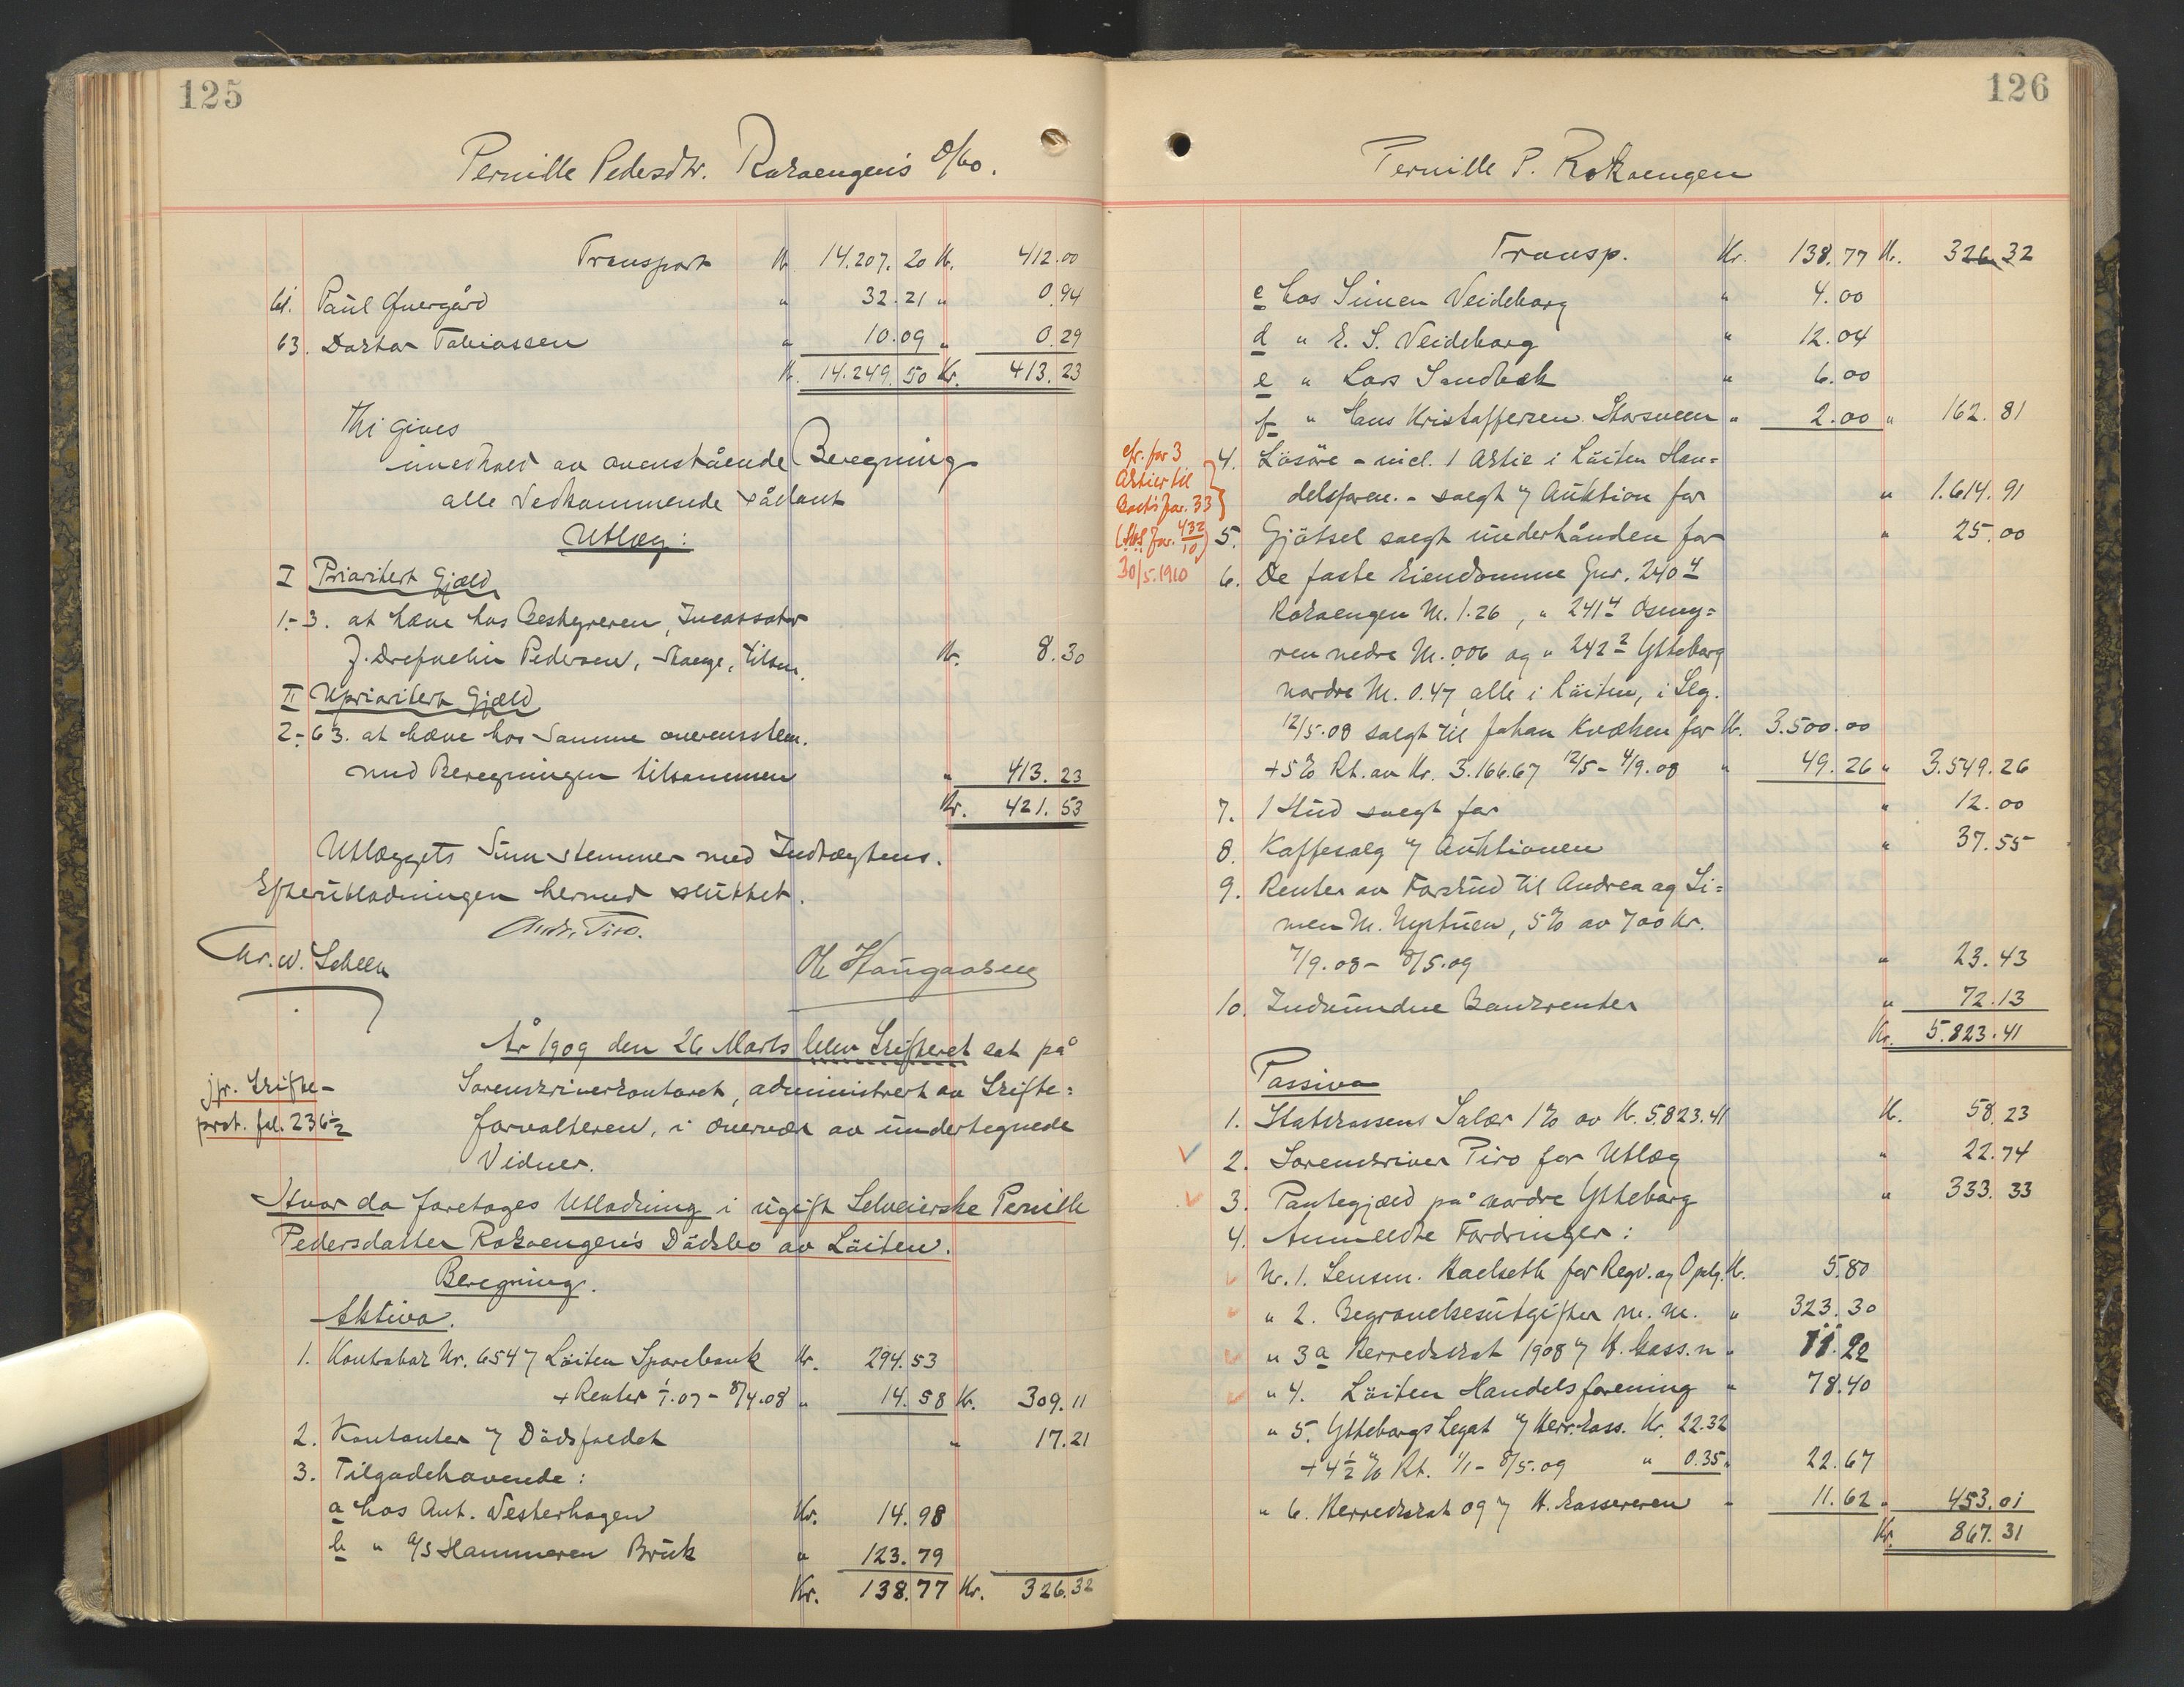 125
Pernille Pedersdtr. Rokoengen's D/bo.
Transport Kr. 14.207.20 Kr. 412.00
61. Paul Gvergård " 32.21 " 0.94
63. Dorthor Tobiassen " 10.09 " 0.29
Kr. 14.249.50 Kr. 413.23
Thi gives
i medhold av ovenstående Beregning
alle Vedkommende sådant
Utlæg:
I Prioritert Gjæld
1.-3. at hæve hos Bestyreren, Incassator
J. Pedersen, Stange, tilsm. Kr. 8.30
II Uprioritert Gjæld
2-63. at hæve hos Samme overensstem.
med Beregningen tilsammen " 413.23
Kr. 421.53
Utlæggets Sum stemmer med Indtægtens.
Efterutlodningen hermed sluttet.
Andr. Piro.
Chr. W. Scheen
O. Haugaasen
År 1909 den 26 Marts blev Skifteret sat på
Sorenskriverkontoret, administrert av Skifte=
forvalteren, i overvær av undertegnede
Vidner.
jfr. Skifte-
prot. fol. 236½
Hvor da foretages Utlodning i ugift Selveierske Pernille
Pedersdatter Rokoengen's Dödsbo av Löiten.
Beregning.
Aktiva.
1. Kontrabok Nr. 6547 Löiten Sparebank Kr. 294.53
+ Renter 1/1.07 - 8/4.08 " 14.58 Kr. 309.11
2. Kontanter v/ Dödsfaldet " 17.21
3. Tilgodehavende:
a hos Ant. Vesterhagen Kr. 14.98
b " A/S Hammeren Bruk " 123.79
Kr. 138.77 Kr. 326.32
126
Pernille P. Rokoengen
Transp. Kr. 138.77 Kr. 326.32
c hos Simen Veideborg " 4.00
d " E. S. Veideborg " 12.04
e " Lars Sandbæk " 6.00
f " Hans Kristoffersen Storsveen " 2.00 " 162.81
cfr. for 3
Aktier til
for. 33
for. 432/10)
30/5.1910
4. Lösöre - incl. 1 Aktie i Löiten Han=
delsforen. - solgt v/ Auktion for " 1.614.91
5. Gjötsel solgt underhånden for " 25.00
6. De faste Eiendomme Gnr. 240⁴
Rokoengen M. 1.26, " 241⁴ Osmy=
ren nedre M. 0.06 og " 242² Ytteborg
nordre M. 0.47, alle i Löiten, i Slg.
12/5.08 solgt til Johan Kvæken for Kr. 3.500.00
+ 5% Rt. av Kr. 3.166.67 12/5 - 4/9.08 " 49.26 " 3.549.26
7. 1 Hud solgt for " 12.00
8. Kaffesalg v/ Auktionen " 37.55
9. Renter av Forskud til Andrea og Si=
men M. Nyrtuen, 5% av 700 Kr.
7/9.08 - 8/5.09 " 23.43
10. Indvundne Bankrenter " 72.13
Kr. 5.823.41
Passiva
1. Statskassens Salær 1% av Kr. 5.823.41 Kr. 58.23
2. Sorenskriver Piro for Utlæg " 22.74
3. Pantegjæld på nordre Ytteborg " 333.33
4. Anmeldte Fordringer:
Nr. 1. Lensm. Kaelseth for Regv. og Opslg. Kr. 5.80
" 2. Begravelsesutgifter m. m. " 323.30
" 3a Herredsskat 1908 v/ H. kass.n " 11.22
" 4. Löiten Handelsforening " 78.40
" 5. Ytteborgs Legat v/ Herr.kass. Kr. 22.32
+ 4½% Rt. 1/1 - 8/5.09 " 0.35 " 22.67
" 6. Herredsskat 09 v/ H. kassereren " 11.62 " 453.01
Kr. 867.31